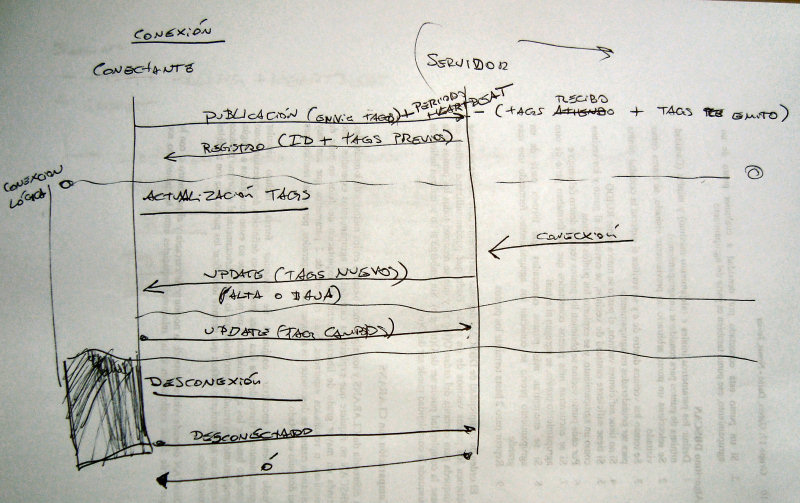 CONEXIÓN
CONECTANTE
SERVIDOR
PUBLICACIÓN (ENVIO TAGS) + PERIODO
- (TAGS RECIBO + TAGS EMITO)
REGISTRO (ID + TAGS PREVIOS)
CONEXION
LÓGICA
ACTUALIZACIÓN TAGS
CONECXIÓN
UPDATE (TAGS NUEVOS)
(ALTA O BAJA)
UPDATE (TAG CAMBIOS)
DESCONEXIÓN
DESCONECTADO
Ó